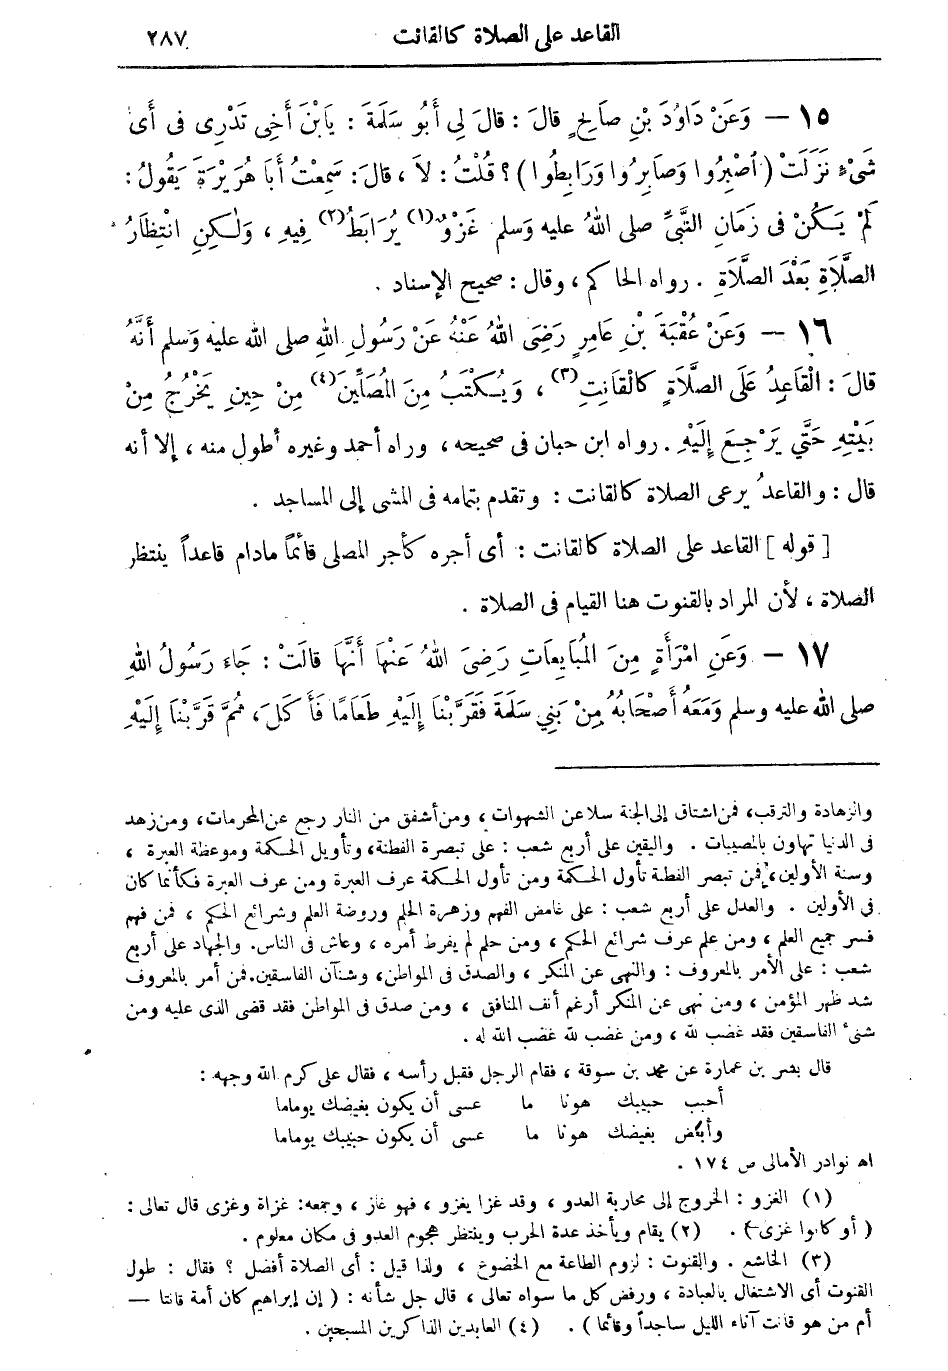 القاعد على الصلاة كالقانت ٢٨٧
١٥ — وَعَنْ دَاوُدَ بْنِ صَالِحٍ قالَ : قالَ لِي أَبُو سَلَمَةَ : يَابْنَ أَخِي تَدْرِى فى أَىِّ
شَيْءٍ نَزَلَتْ ( اُصْبِرُوا وَصَابِرُوا وَرَابِطُوا ) ؟ قُلْتُ : لاَ ، قالَ : سَمِعْتُ أَبَا هُرَيْرَةَ يَقُولُ :
لَمْ يَكُنْ فى زَمَانِ النَّبِيِّ صلى اللهُ عليه وَسلم غَزْوٌ (١) يُرَابَطُ (٢) فِيهِ ، وَلٰكِنِ انْتِظَارُ
الصَّلاَةِ بَعْدَ الصَّلاَةِ . رواه الحاكم ، وقال : صحيح الإسناد .
١٦ — وَعَنْ عُقْبَةَ بْنِ عَامِرٍ رَضِىَ اللهُ عَنْهُ عَنْ رَسُولِ اللهِ صلى الله عليه وَسلم أَنَّهُ
قالَ : الْقَاعِدُ عَلَى الصَّلاَةِ كالْقَانِتِ (٣) ، وَيُكْتَبُ مِنَ المُصَلِّينَ (٤) مِنْ حِينِ يَخْرُجُ مِنْ
بَيْتِهِ حَتَّى يَرْجِعَ إِلَيْهِ . رواه ابن حبان فى صحيحه ، وراه أحمد وغيره أطول منه ، إلا أنه
قال : والقاعدُ يرعى الصلاة كالقانت : وتقدم بتمامه فى المشى إلى المساجد .
[ قوله ] القاعد على الصلاة كالقانت : أى أجره كأجر المصلى قائماً مادام قاعداً ينتظر
الصلاة ، لأن المراد بالقنوت هنا القيام فى الصلاة .
١٧ — وَعَنِ امْرَأَةٍ مِنَ المُبَايِعَاتِ رَضِىَ اللهُ عَنْهَا أَنَّهَا قالَتْ : جَاءَ رَسُولُ اللهِ
صلى الله عليه وسلم وَمَعَهُ أَصْحَابُهُ مِنْ بَنِي سَلَمَةَ فَقَرَّبْنَا إِلَيْهِ طَعَامًا فَأَكَلَ ، ثُمَّ قَرَّبْنَا إِلَيْهِ
والزهادة والترقب ، فمن اشتاق إلى الجنة سلا عن الشهوات ، ومن أشفق من النار رجع عن المحرمات ، ومن زهد
فى الدنيا تهاون بالمصيبات . واليقين على أربع شعب : على تبصرة الفطنة ، وتأويل الحكمة وموعظة العبرة ،
وسنة الأولين ، فمن تبصر الفطنة تأول الحكمة ومن تأول الحكمة عرف العبرة ومن عرف العبرة فكأنما كان
فى الأولين . والعدل على أربع شعب : على غامض الفهم وزهرة الحلم وروضة العلم وشرائع الحكم ، فمن فهم
فسر جميع العلم ، ومن علم عرف شرائع الحكم ، ومن حلم لم يفرط أمره ، وعاش فى الناس . والجهاد على أربع
شعب : على الأمر بالمعروف : والنهى عن المنكر ، والصدق فى المواطن ، وشنآن الفاسقين . فمن أمر بالمعروف
شد ظهر المؤمن ، ومن نهى عن المنكر أرغم أنف المنافق ، ومن صدق فى المواطن فقد قضى الذى عليه ومن
شنىء الفاسقين فقد غضب لله ، ومن غضب لله غضب الله له .
قال بشر بن عمارة عن محمد بن سوقة ، فقام الرجل فقبل رأسه ، فقال على كرم الله وجهه :
أحبب حبيبك هونا ما عسى أن يكون بغيضك يوماما
وأبغض بغيضك هونا ما عسى أن يكون حبيبك يوماما
اه نوادر الأمالى ص ١٧٤ .
(١) الغزو : الخروج إلى محاربة العدو ، وقد غزا يغزو ، فهو غاز ، وجمعه : غزاة وغزى قال تعالى :
( أو كانوا غزى ) . (٢) يقام ويأخذ عدة الحرب وينتظر هجوم العدو فى مكان معلوم .
(٣) الخاشع . والقنوت : لزوم الطاعة مع الخضوع ، ولذا قيل : أى الصلاة أفضل ؟ فقال : طول
القنوت أى الاشتغال بالعبادة ، ورفض كل ما سواه تعالى ، قال جل شأنه : ( إن إبراهيم كان أمة قانتا —
أم من هو قانت آناء الليل ساجداً وقائما ) . (٤) العابدين الذاكرين المسبحين .